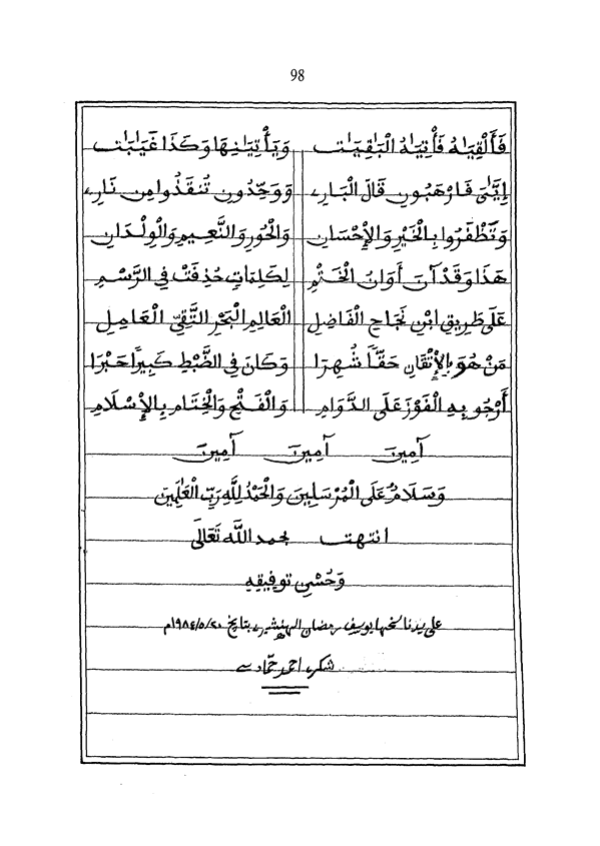 98
فَأَلْقِيَٰهُ فَأْتِيَٰهُ الْبَٰقِيَٰت وَيَأْتِيَٰنِهَا وَكَذَا غَيَٰبَٰت
إِيَّٰىَ فَارْهَبُونِ قَالَ الْبَارِي وَوَحِّدُونِ تُنقَذُوا مِن نَارِي
وَتَظْفَرُوا بِالْخَيْرِ وَالْإِحْسَانِ وَالْحُورِ وَالنَّعِيمِ وَالْوِلْدَانِ
هَذَا وَقَدْ آنَ أَوَانُ الْخَتْمِ لِكَلِمَاتٍ حُذِفَتْ فِي الرَّسْمِ
عَلَى طَرِيقِ ابْنِ نَجَاحِ الْفَاضِلِ الْعَالِمِ الْبَحْرِ التَّقِيِّ الْعَامِلِ
مَنْ هُوَ بِالْإِتْقَانِ حَقًّا شُهِرَا وَكَانَ فِي الضَّبْطِ كَبِيرًا حَبْرَا
أَرْجُو بِهِ الْفَوْزَ عَلَى الدَّوَامِ وَالْفَتْحِ وَالْخِتَامِ بِالْإِسْلَامِ
آمِين آمِين آمِين
وَسَلَامٌ عَلَى الْمُرْسَلِينَ وَالْحَمْدُ لِلَّهِ رَبِّ الْعَٰلَمِينَ
انتهت بحمد اللَّه تَعَالَى
وَحُسْنِ توفِيقِهِ
على يد ناسخها يوسف رمضان الهنشيري بتاريخ ١٩٨٤/٥/٢٠م
شكري احمد حمّادي